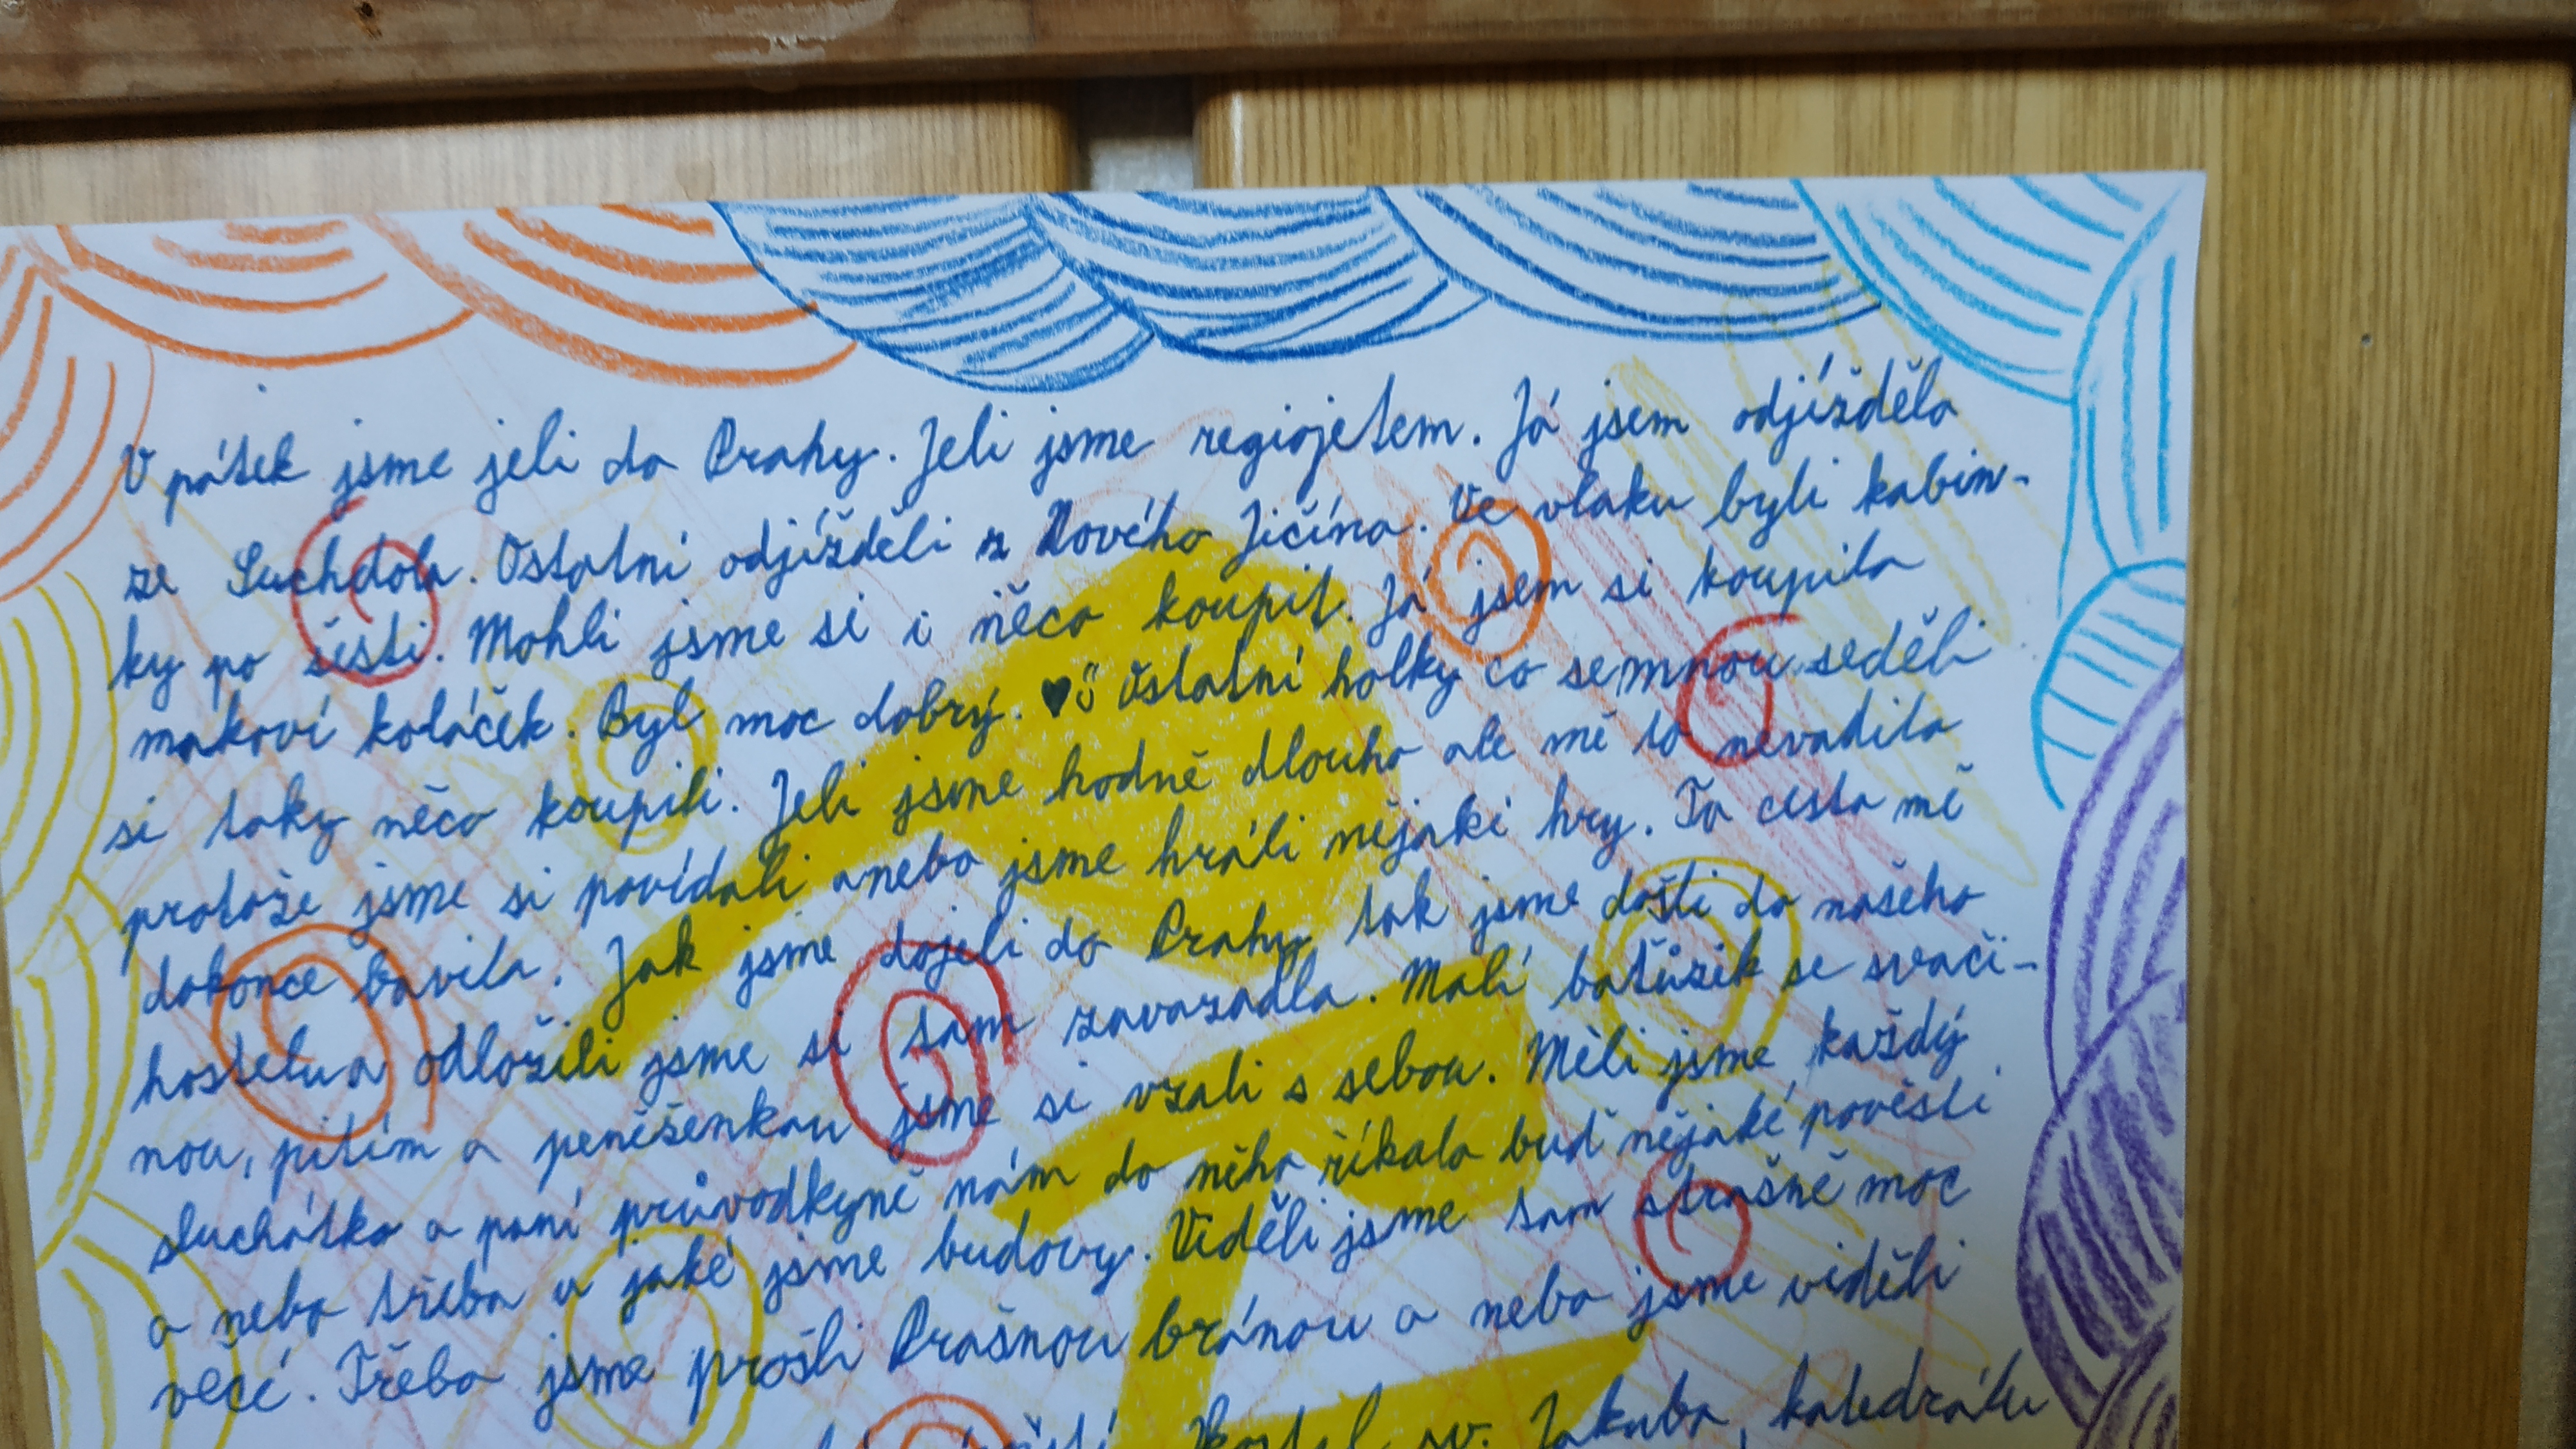 V pátek jsme jeli do Prahy. Jeli jsme regiojetem. Já jsem odjížděla
ze Suchdola. Ostatní odjížděli z Nového Jičína. Ve vlaku byli kabin-
ky po šesti. Mohli jsme si i něco koupit. Já jsem si koupila
makoví koláček. Byl moc dobrý. ♥ Ostatní holky co semnou seděli
si taky něco koupili. Jeli jsme hodně dlouho ale mě to nevadilo
protože jsme si povídali anebo jsme hráli nějaki hry. Ta cesta mě
dokonce bavila. Jak jsme dojeli do Prahy, tak jsme došli do našeho
hostelu a odložili jsme si tam zavazadla. Malí batůžek se svači-
nou, pitím a peněženkou jsme si vzali s sebou. Měli jsme každý
sluchátko a paní průvodkyně nám do něho říkala buď nějaké pověsti
a nebo třeba u jaké jsme budovy. Viděli jsme tam strašně moc
věcí. Třeba jsme prošli Prašnou bránou a nebo jsme viděli
Kostel sv. Jakuba, katedrálu